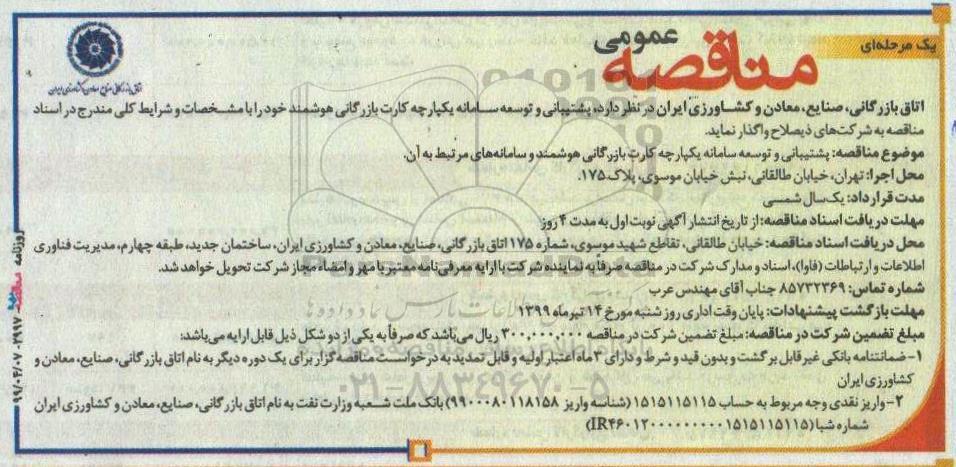 یک مرحله‌ای
مناقصه عمومی
اتاق بازرگانی، صنایع، معادن و کشاورزی ایران
اتاق بازرگانی، صنایع، معادن و کشاورزی ایران در نظر دارد، پشتیبانی و توسعه سامانه یکپارچه کارت بازرگانی هوشمند خود را با مشخصات و شرایط کلی مندرج در اسناد
مناقصه به شرکت‌های ذیصلاح واگذار نماید.
موضوع مناقصه: پشتیبانی و توسعه سامانه یکپارچه کارت بازرگانی هوشمند و سامانه‌های مرتبط به آن.
محل اجرا: تهران، خیابان طالقانی، نبش خیابان موسوی، پلاک ۱۷۵.
مدت قرارداد: یک سال شمسی
مهلت دریافت اسناد مناقصه: از تاریخ انتشار آگهی نوبت اول به مدت ۴ روز
محل دریافت اسناد مناقصه: خیابان طالقانی، تقاطع شهید موسوی، شماره ۱۷۵ اتاق بازرگانی، صنایع، معادن و کشاورزی ایران، ساختمان جدید، طبقه چهارم، مدیریت فناوری
اطلاعات و ارتباطات (فاوا)، اسناد و مدارک شرکت در مناقصه صرفاً به نماینده شرکت با ارایه معرفی‌نامه معتبر با مهر و امضاء مجاز شرکت تحویل خواهد شد.
شماره تماس: ۸۵۷۳۲۳۶۹ جناب آقای مهندس عرب
مهلت بازگشت پیشنهادات: پایان وقت اداری روز شنبه مورخ ۱۴ تیر ماه ۱۳۹۹
مبلغ تضمین شرکت در مناقصه: مبلغ تضمین شرکت در مناقصه ۳۰۰۰،۰۰۰،۰۰۰ ریال می‌باشد که صرفاً به یکی از دو شکل ذیل قابل ارایه می‌باشد:
۱- ضمانتنامه بانکی غیر قابل برگشت و بدون قید و شرط و دارای ۳ ماه اعتبار اولیه و قابل تمدید به درخواست مناقصه‌گزار برای یک دوره دیگر به نام اتاق بازرگانی، صنایع، معادن و
کشاورزی ایران
۲- واریز نقدی وجه مربوط به حساب ۱۵۱۵۱۱۵۱۱۵ (شناسه واریز ۹۹۰۰۰۰۸۰۱۱۸۱۵۸) بانک ملت شعبه وزارت نفت به نام اتاق بازرگانی، صنایع، معادن و کشاورزی ایران
شماره شبا (IR۴۶۰۱۲۰۰۰۰۰۰۰۰۰۱۵۱۵۱۱۵۱۱۵)
۰۲۱-۸۸۳۴۹۶۷۰-۵
روزنامه ۲۹۹۷ - ۹۹/۰۴/۰۷